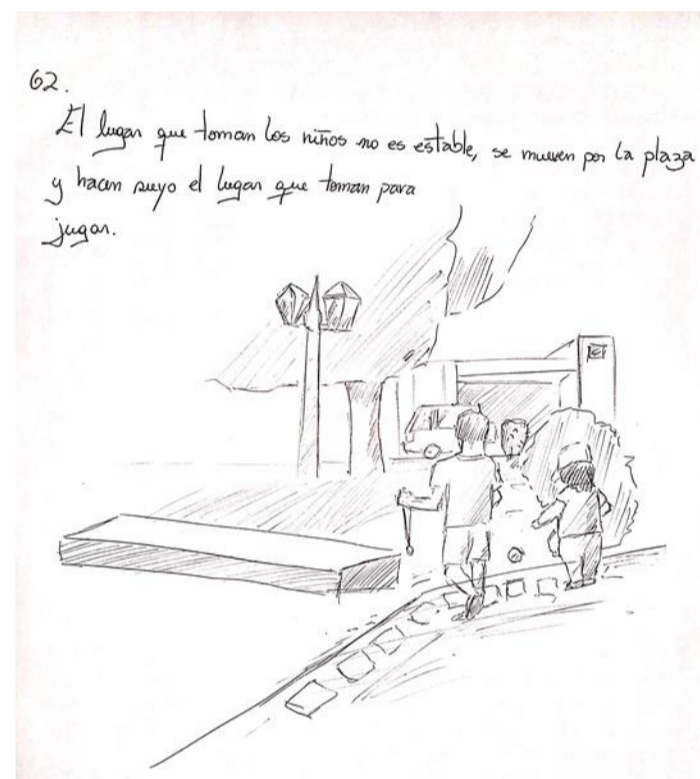 62.
El lugar que toman los niños no es estable, se mueven por la plaza
y hacen suyo el lugar que toman para
jugar.